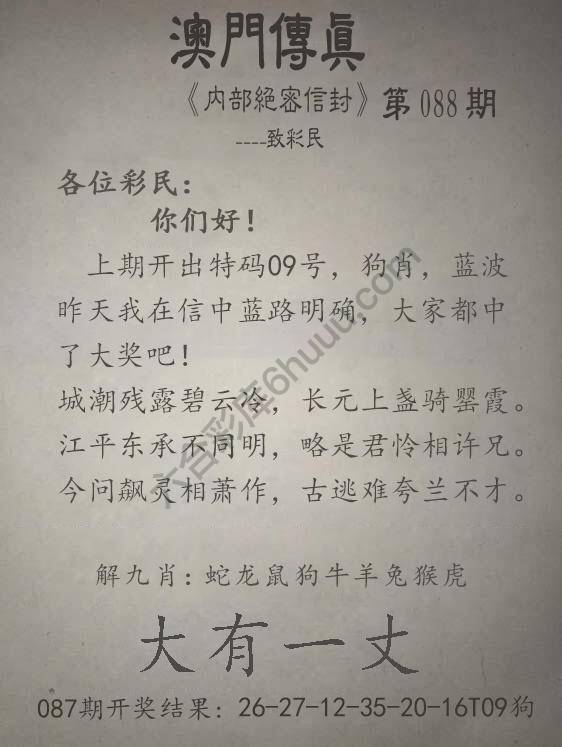 澳門傳眞
《内部絕密信封》第088期
----致彩民
各位彩民：
你们好！
上期开出特码09号，狗肖，蓝波
昨天我在信中蓝路明确，大家都中
了大奖吧！
城潮残露碧云冷，长元上盏骑罂霞。
江平东承不同明，略是君怜相许兄。
今问飙灵相萧作，古逃难夸兰不才。
六合彩库6huuu.com
解九肖：蛇龙鼠狗牛羊兔猴虎
大有一丈
087期开奖结果：26-27-12-35-20-16T09狗